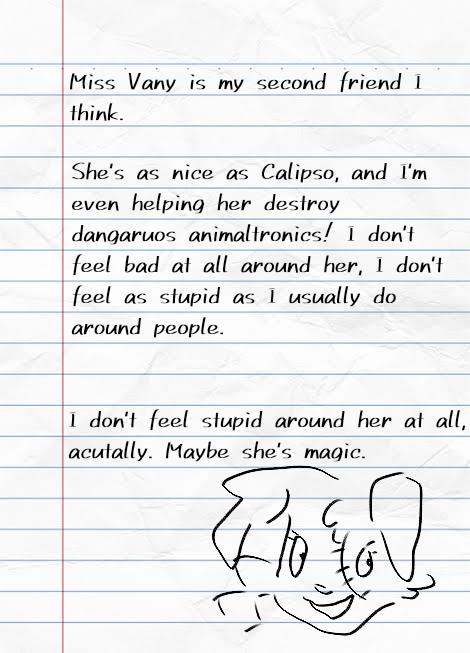 Miss Vany is my second friend I
think.
She's as nice as Calipso, and I'm
even helping her destroy
dangaruos animaltronics! I don't
feel bad at all around her, I don't
feel as stupid as I usually do
around people.
I don't feel stupid around her at all,
acutally. Maybe she's magic.